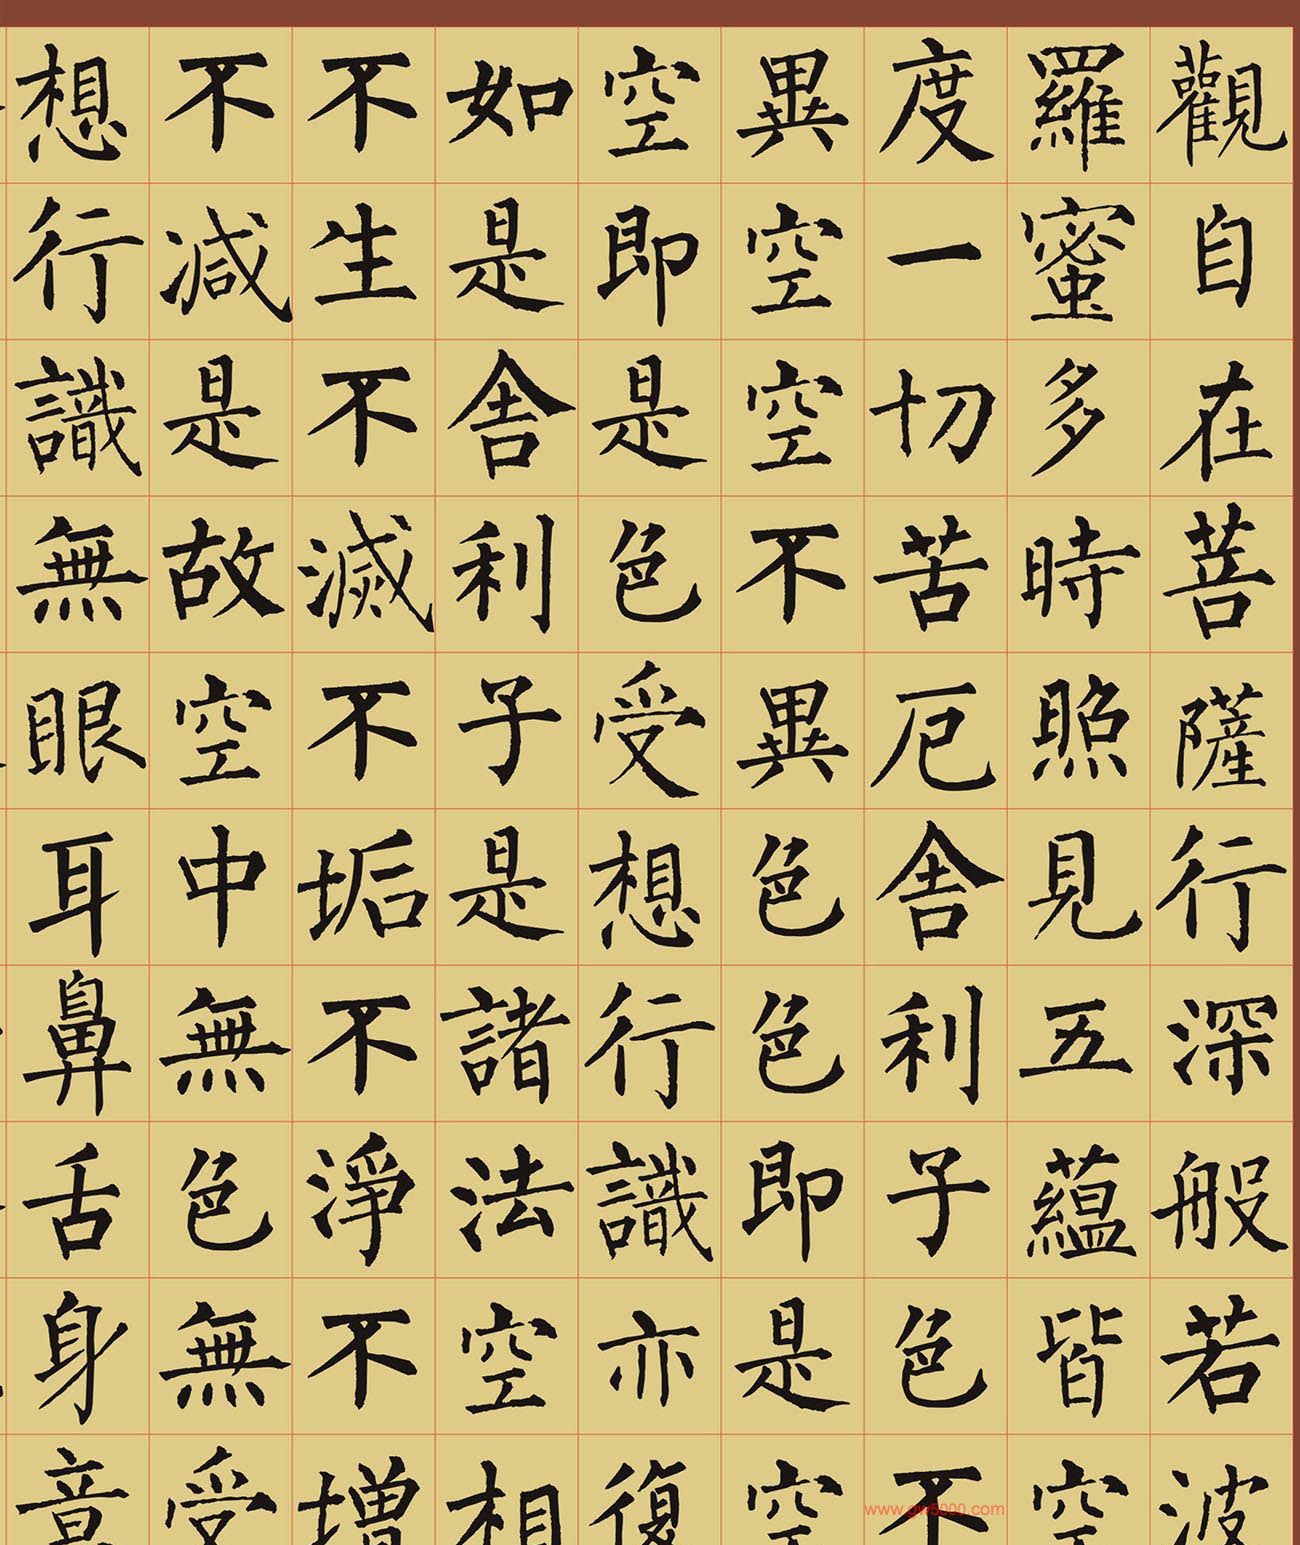 觀自在菩薩行深般若波
羅蜜多時照見五蘊皆空
度一切苦厄舍利子色不
異空空不異色色即是空
空即是色受想行識亦復
如是舍利子是諸法空相
不生不滅不垢不淨不增
不減是故空中無色無受
想行識無眼耳鼻舌身意
www.gw5000.com